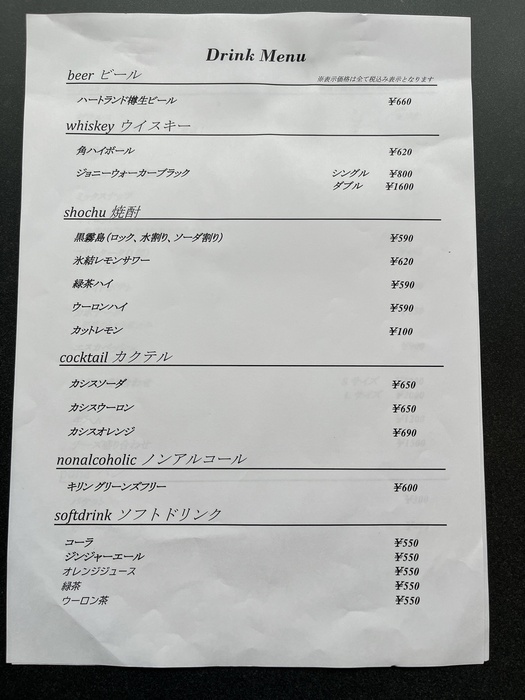 Drink Menu
beer ビール ※表示価格は全て税込み表示となります
ハートランド樽生ビール ¥660
whiskey ウイスキー
角ハイボール ¥620
ジョニーウォーカーブラック シングル ¥800
ダブル ¥1600
shochu 焼酎
黒霧島（ロック、水割り、ソーダ割り） ¥590
氷結レモンサワー ¥620
緑茶ハイ ¥590
ウーロンハイ ¥590
カットレモン ¥100
cocktail カクテル
カシスソーダ ¥650
カシスウーロン ¥650
カシスオレンジ ¥690
nonalcoholic ノンアルコール
キリン グリーンズフリー ¥600
softdrink ソフトドリンク
コーラ ¥550
ジンジャーエール ¥550
オレンジジュース ¥550
緑茶 ¥550
ウーロン茶 ¥550